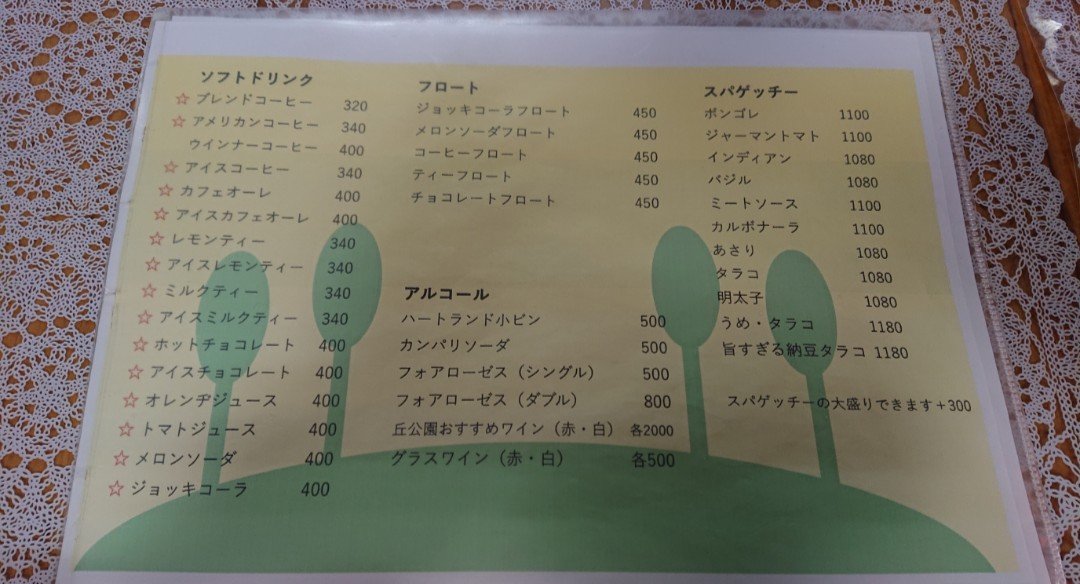 ソフトドリンク
☆ ブレンドコーヒー 320
☆ アメリカンコーヒー 340
ウインナーコーヒー 400
☆ アイスコーヒー 340
☆ カフェオーレ 400
☆ アイスカフェオーレ 400
☆ レモンティー 340
☆ アイスレモンティー 340
☆ ミルクティー 340
☆ アイスミルクティー 340
☆ ホットチョコレート 400
☆ アイスチョコレート 400
☆ オレンヂジュース 400
☆ トマトジュース 400
☆ メロンソーダ 400
☆ ジョッキコーラ 400
フロート
ジョッキコーラフロート 450
メロンソーダフロート 450
コーヒーフロート 450
ティーフロート 450
チョコレートフロート 450
アルコール
ハートランド小ビン 500
カンパリソーダ 500
フォアローゼス（シングル） 500
フォアローゼス（ダブル） 800
丘公園おすすめワイン（赤・白） 各2000
グラスワイン（赤・白） 各500
スパゲッチー
ボンゴレ 1100
ジャーマントマト 1100
インディアン 1080
バジル 1080
ミートソース 1100
カルボナーラ 1100
あさり 1080
タラコ 1080
明太子 1080
うめ・タラコ 1180
旨すぎる納豆タラコ 1180
スパゲッチーの大盛りできます＋300